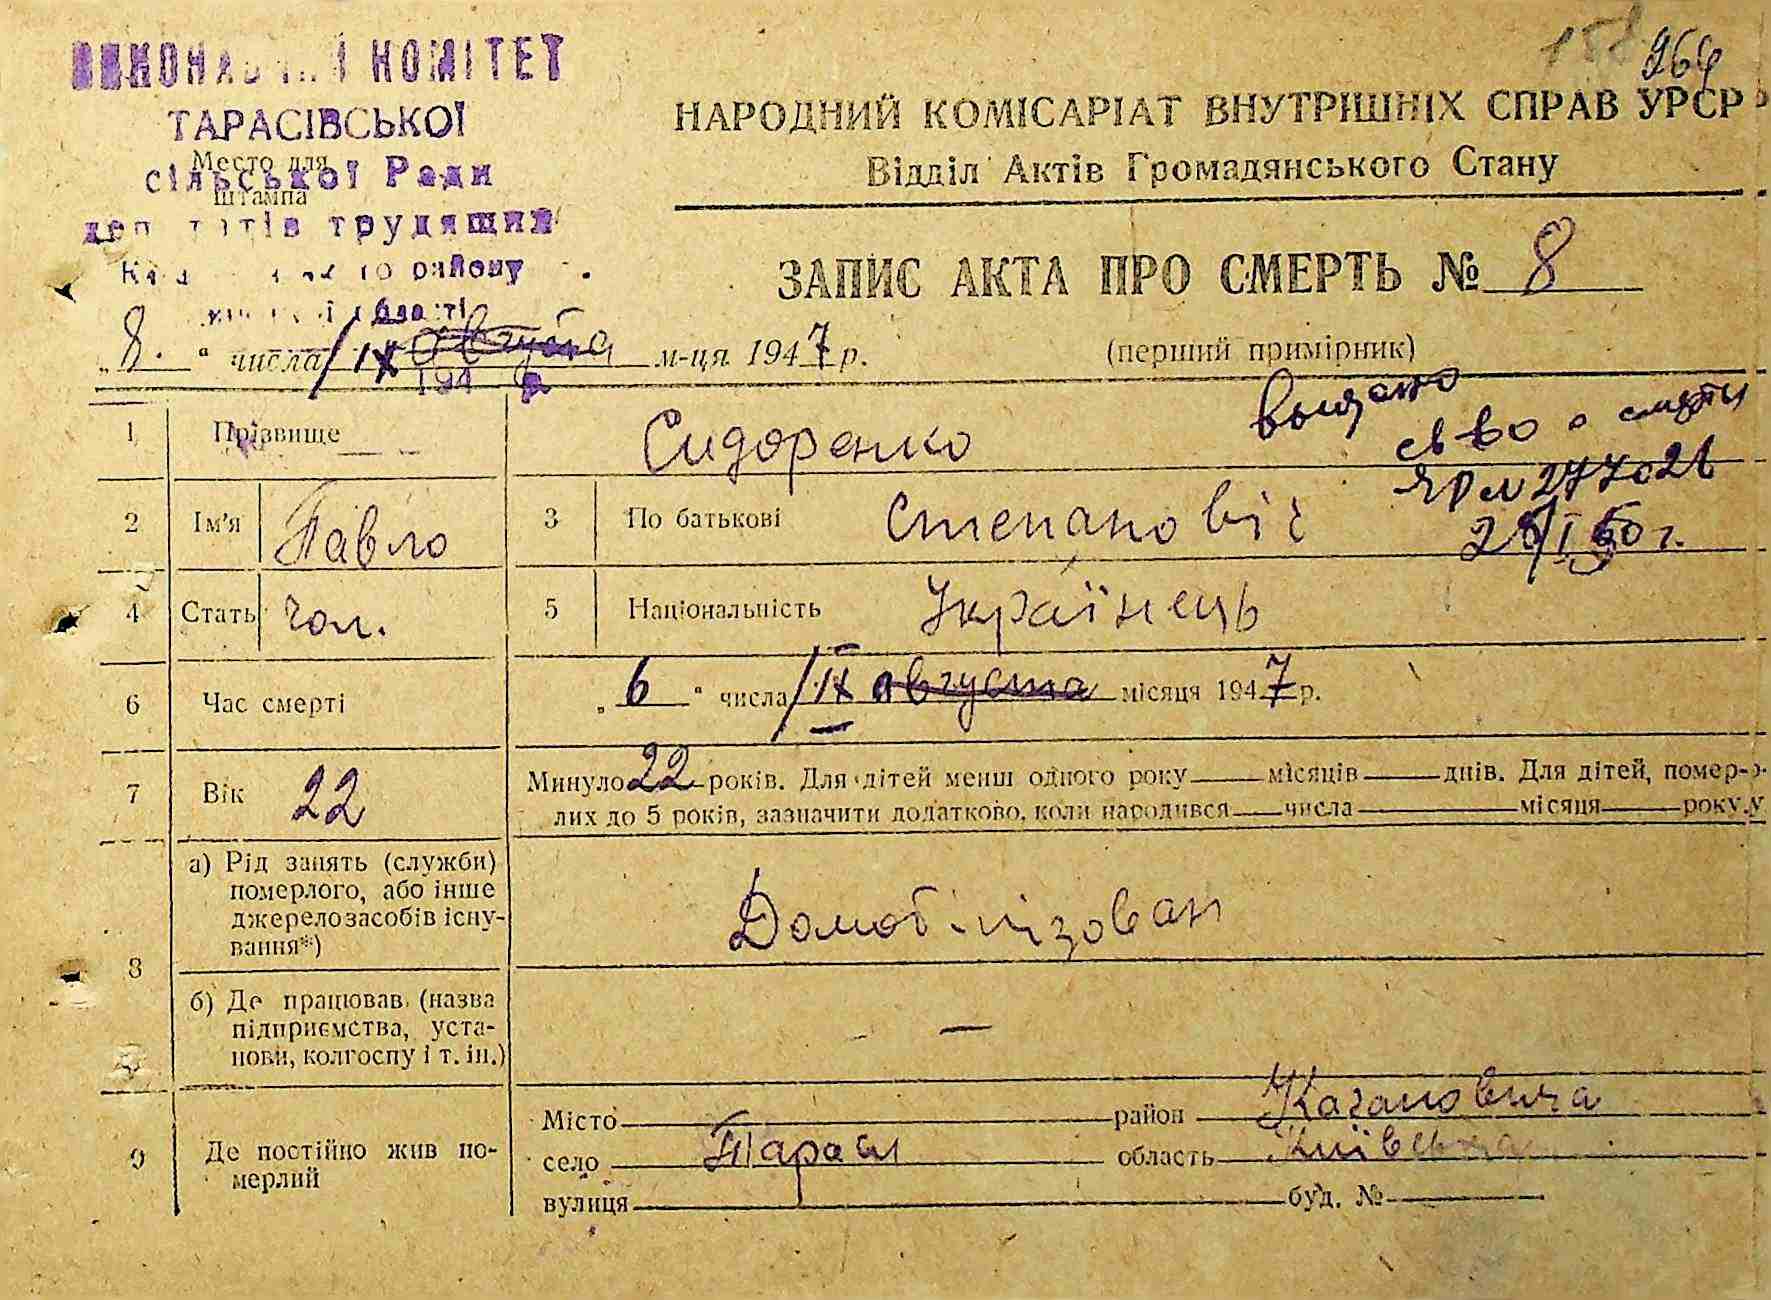 ВИКОНАВЧИЙ КОМІТЕТ
ТАРАСІВСЬКОЇ
сільської Ради
Место для
штампа
депутатів трудящих
району
області
194 р.
964
НАРОДНИЙ КОМІСАРІАТ ВНУТРІШНІХ СПРАВ УРСР
Відділ Актів Громадянського Стану
ЗАПИС АКТА ПРО СМЕРТЬ № 8
„8." числа /ІХ августа м-ця 1947 р.
(перший примірник)
1 Прізвище Сидоренко
выдано
св во о смерти
ЯР № 277026
28/I 50 г.
2 Ім'я Павло 3 По батькові Степановіч
4 Стать чол. 5 Національність Українець
6 Час смерті „6" числа /ІХ августа місяця 1947 р.
7 Вік 22 Минуло 22 років. Для дітей менш одного року місяців днів. Для дітей, помер-
лих до 5 років, зазначити додатково, коли народився числа місяця року
8 а) Рід занять (служби)
померлого, або інше
джерело засобів існу-
вання*)
Домобілізован
б) Де працював (назва
підприємства, уста-
нови, колгоспу і т. ін.)
—
9 Де постійно жив по-
мерлий
Місто район Кагановича
село область Київська
вулиця буд. №